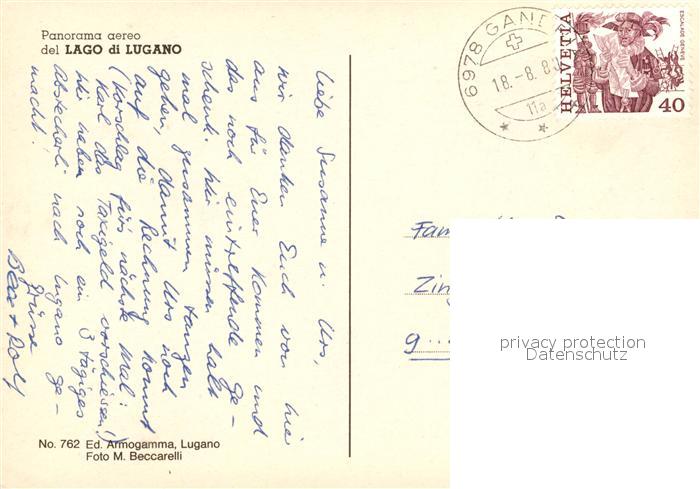 Panorama aereo
del LAGO di LUGANO
Liebe Susanne u. Urs,
wir danken Euch von hie
aus für Euer Kommen und
das noch eintreffende Ge-
schenk. Wir müssen halt
mal zusammen tanzen
gehen, damit Urs noch
auf die Rechnung kommt
(Vorschlag für's nächste Mal:
Karl das Taxigeld vorschiessen!)
Wir haben noch ein 3 tägiges
Abstecherli nach Lugano ge-
macht!
Grüsse
+ Rolf
No. 762 Ed. Armogamma, Lugano
Foto M. Beccarelli
6978 GAND
18.-8.8
11a
HELVETIA
ESCALADE GENEVE
40
Fam
Zin
9...
privacy protection
Datenschutz